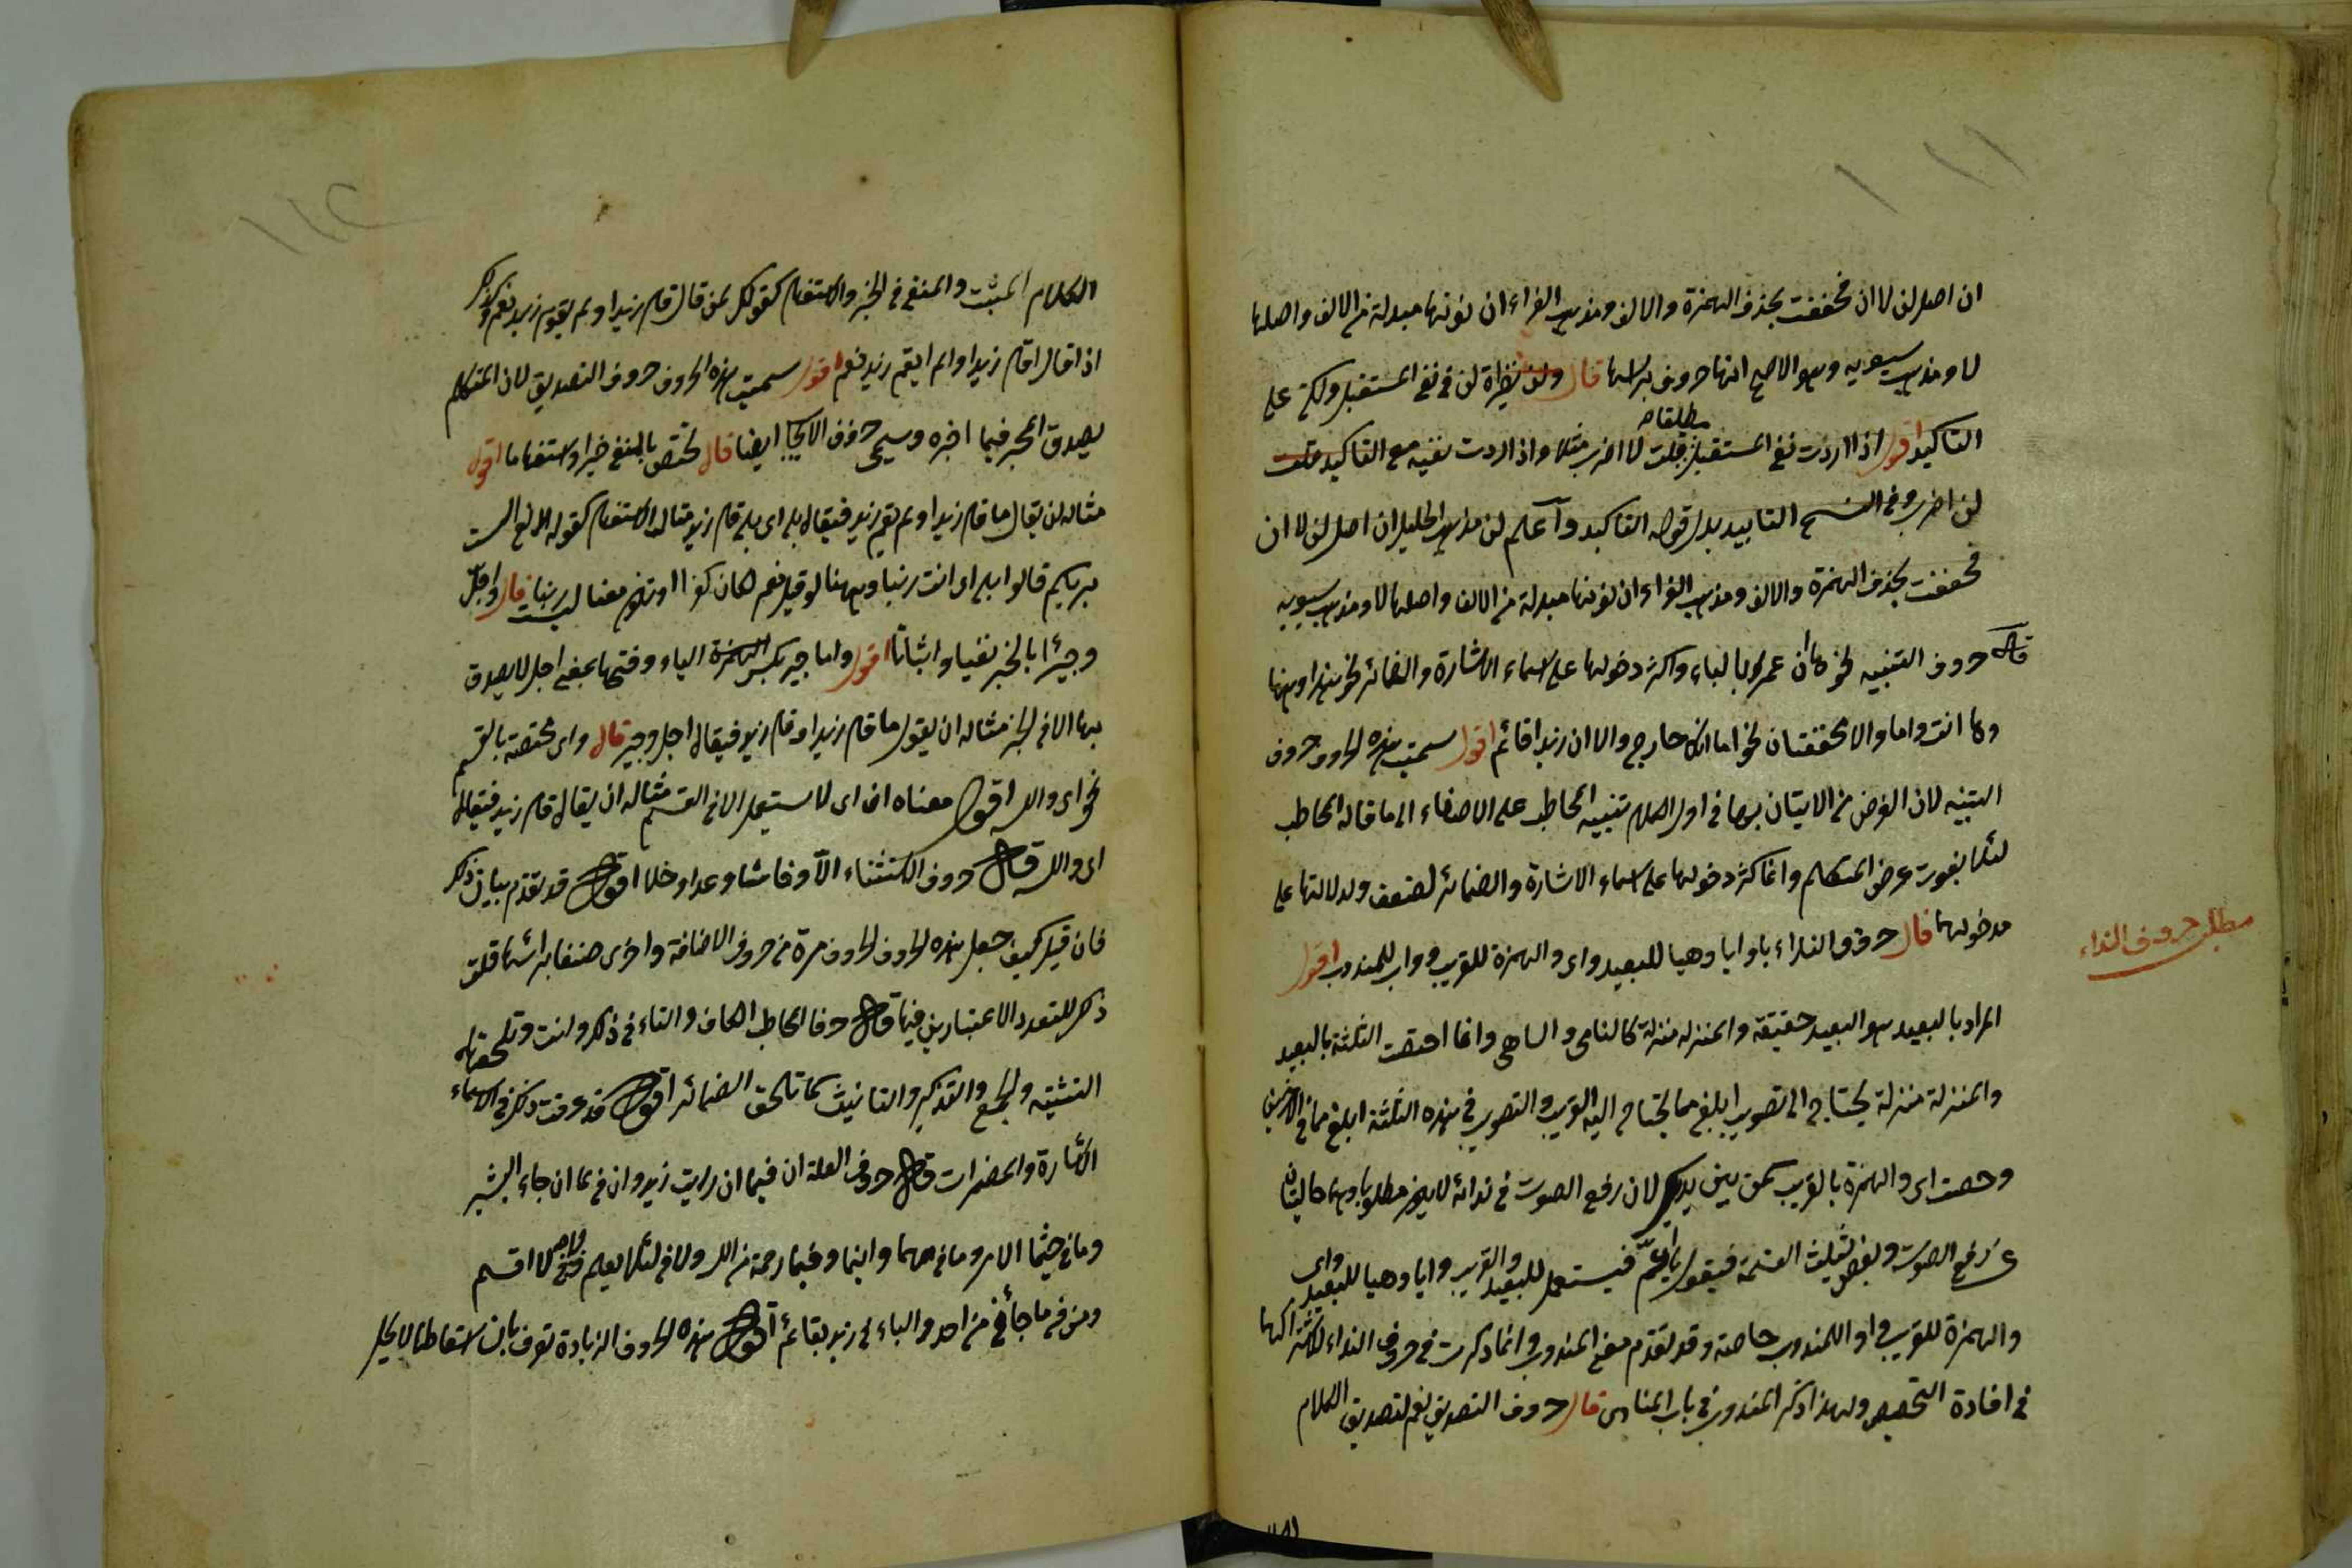 ١١١
ان اصل لن لا ان فخففت بحذف الهمزة والالف ومذهب الفراء ان نونها مبدلة من الالف واصلها
لا ومذهب سيبويه وهو الاصح انها حرف برأسها قال ولن نظيرة لن في نفي المستقبل ولكن على
التاكيد اقول اذا اردت نفي المستقبل مطلقا قلت لا اضرب مثلا واذا اردت نفيه مع التاكيد قلت
لن اضرب وفي النسخ التابيد بدل قوله التاكيد واعلم ان مذهب الخليل ان اصل لن لا ان
فخففت بحذف الهمزة والالف ومذهب الفراء ان نونها مبدلة من الالف واصلها لا ومذهب سيبويه
قال حروف التنبيه نحو ها ان عمرا بالباب واكثر دخولها على اسماء الاشارة والضمائر نحو هذا وهنا
وها انت واما والا مخففتان نحو اما انك خارج والا ان زيدا قائم اقول سميت هذه الحروف حروف
التنبيه لان الغرض من الاتيان بها في اول الكلام تنبيه المخاطب على الاصغاء الى ما قاله المخاطب
لئلا يفوت غرض المتكلم وانما كثر دخولها على اسماء الاشارة والضمائر لضعف دلالتها على
مدخولهما قال حروف النداء يا وايا وهيا للبعيد واي والهمزة للقريب ووا للمندوب اقول
مطلب حروف النداء
المراد بالبعيد هو البعيد حقيقة والمنزل منزلة كالنامي والساهي وانما اختصت الثلثة بالبعيد
والمنزلة منزلة يحتاج الى تصويت ابلغ مما يحتاج اليه القريب والتصويت في هذه الثلثة ابلغ مما في الاخيرين
وخصت اي والهمزة بالقريب كمن بين يديك لان رفع الصوت في ندائه لا يكون مطلوبا وهما خاليتان
عن رفع الصوت وبعض يثلث القسمة فيقول يا اعم فيستعمل للبعيد والقريب وايا وهيا للبعيد واي
والهمزة للقريب ووا للمندوب خاصة وقد تقدم معنى المندوب وانما ذكرت في حروف النداء لاشتراكها
في افادة التخصيص ولهذا ذكر المندوب في باب المنادى قال حروف التصديق نعم لتصديق الكلام
١١٢
الكلام المثبت والمنفي في الخبر والاستفهام كقولك لمن قال قام زيد او لم يقم زيد نعم وكذلك
اذا قال اقام زيد او الم يقم زيد نعم اقول سميت هذه الحروف حروف التصديق لان المتكلم
يصدق المخبر فيما اخبره وسمي حروف الايجاب ايضا قال بلى تختص بالمنفي خبرا واستفهاما اقول
مثاله ان يقال ما قام زيد او لم يقم زيد فيقال بلى اي بلى قام زيد مثال الاستفهام كقوله تعالى الست
بربكم قالوا بلى اي انت ربنا وههنا لو قيل نعم لكان كفرا اذ يكون معناه لست ربنا قال واجل
وجير بالخبر نفيا واثباتا اقول واما جير بكسر الهمزة الياء وفتحها بمعنى اجل لا يصدق
بها الا في الخبر مثاله ان يقول ما قام زيد او قام زيد فيقال اجل وجير قال واي مختصة بالقسم
نحو اي والله اقول معناه ان اي لا يستعمل الا في القسم مثاله ان يقال قام زيد فيقال
اي والله قال حروف الاستثناء الا وحاشا وعدا وخلا اقول قد تقدم بيان ذلك
فان قيل كيف جعل هذه الحروف الحروف مرة من حروف الاضافة واخرى صنفا برأسها قلت
ذكر للتعدد الاعتبارين فيها قال حرفا الخطاب الكاف والتاء في ذلك وانت وتلحقهما
التثنية والجمع والتذكير والتانيث كما تلحق الضمائر اقول قد عرفت ذلك في اسماء
الاشارة والمضمرات قال حروف الصلة ان فيما ان رايت زيدا وان في لما ان جاء البشير
وما في حيثما الامر وما في مهما واينما وفبما رحمة من الله ولا في لئلا يعلم ولا في لا اقسم
ومن في ما جاءني من احد والباء في زيد بقائم اقول هذه الحروف الزيادة تعرف بان اسقاطها لا يخل